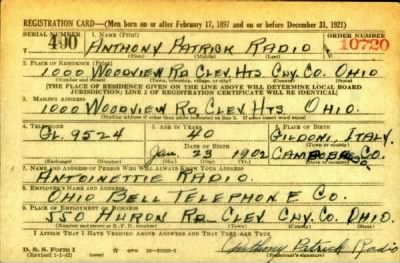 REGISTRATION CARD—(Men born on or after February 17, 1897 and on or before December 31, 1921)
SERIAL NUMBER 1. NAME (Print) ORDER NUMBER
490 ANTHONY PATRICK RADIO 10720
(First) (Middle) (Last)
2. PLACE OF RESIDENCE (Print)
1000 WOODVIEW RD CLEV. HTS. CUY. CO. OHIO
(Number and street) (Town, township, village, or city) (County) (State)
[THE PLACE OF RESIDENCE GIVEN ON THE LINE ABOVE WILL DETERMINE LOCAL BOARD
JURISDICTION; LINE 2 OF REGISTRATION CERTIFICATE WILL BE IDENTICAL]
3. MAILING ADDRESS
1000 WOODVIEW RD CLEV. HTS. OHIO.
[Mailing address if other than place indicated on line 2. If same insert word same]
4. TELEPHONE 5. AGE IN YEARS 6. PLACE OF BIRTH
GL. 9524 40 GILDONI, ITALY.
DATE OF BIRTH (Town or county)
Jan. 23 1902 CO.
(Exchange) (Number) (Mo.) (Day) (Yr.) (State or country)
7. NAME AND ADDRESS OF PERSON WHO WILL ALWAYS KNOW YOUR ADDRESS
ANTOINETTIE RADIO.
8. EMPLOYER'S NAME AND ADDRESS
OHIO BELL TELEPHONE CO.
9. PLACE OF EMPLOYMENT OR BUSINESS
550 HURON RD CLEV. CUY. CO. OHIO.
(Number and street or R. F. D. number) (Town) (County) (State)
I AFFIRM THAT I HAVE VERIFIED ABOVE ANSWERS AND THAT THEY ARE TRUE
D. S. S. Form 1
(Revised 1-1-42) Anthony Patrick Radio